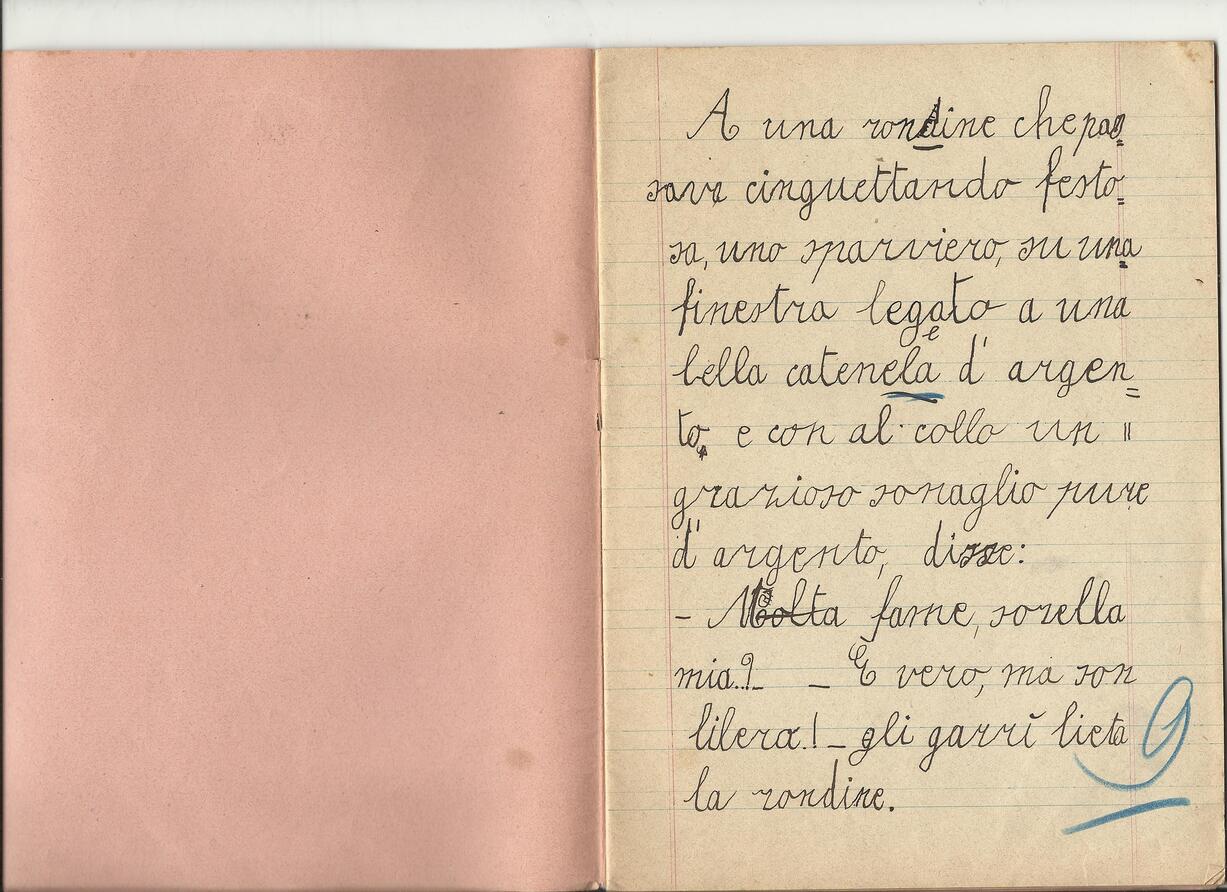 A una rondine che pas=
sava cinguettando festo=
sa, uno sparviero, su una
finestra legato a una
bella catenela d'argen=
e
to, e con al collo un "
grazioso sonaglio pure
d'argento, disse:
- Molta fame, sorella
mia?_ _ È vero, ma son
libera.! _ gli garrì lieta
la rondine.
9